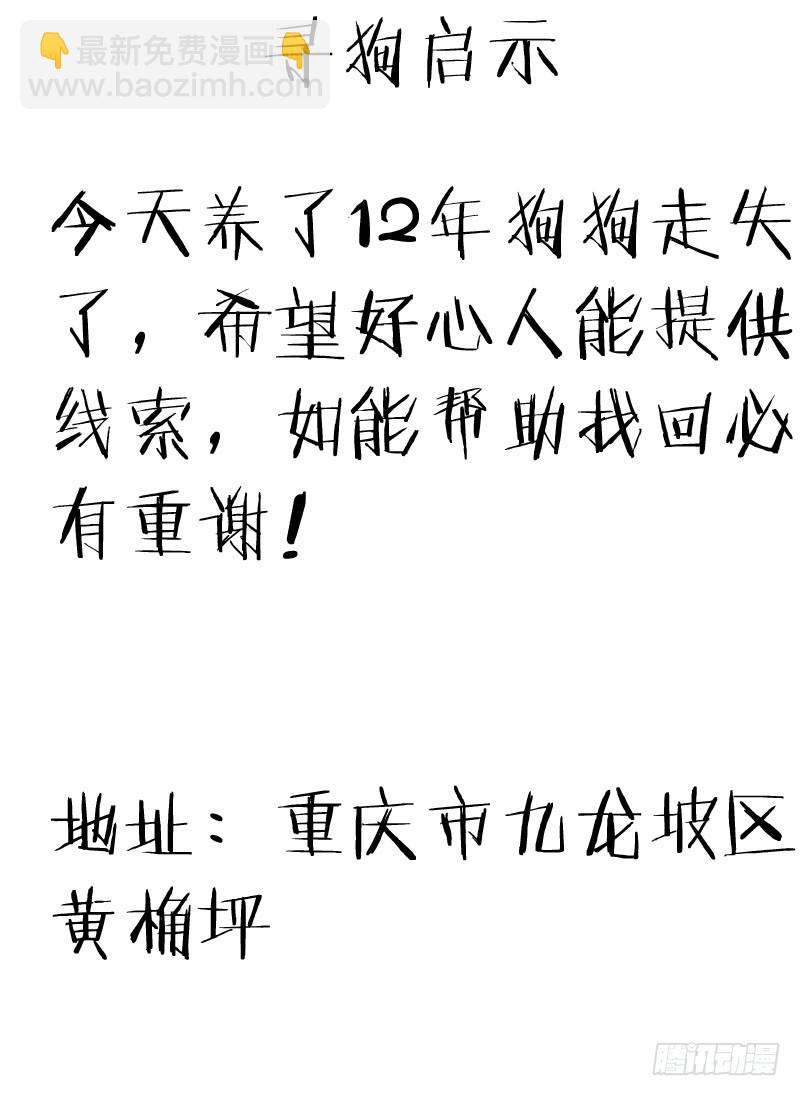 最新免费漫画
www.baozimh.com
寻狗启示
今天养了12年狗狗走失
了，希望好心人能提供
线索，如能帮助找回必
有重谢！
地址：重庆市九龙坡区
黄桷坪
腾讯动漫